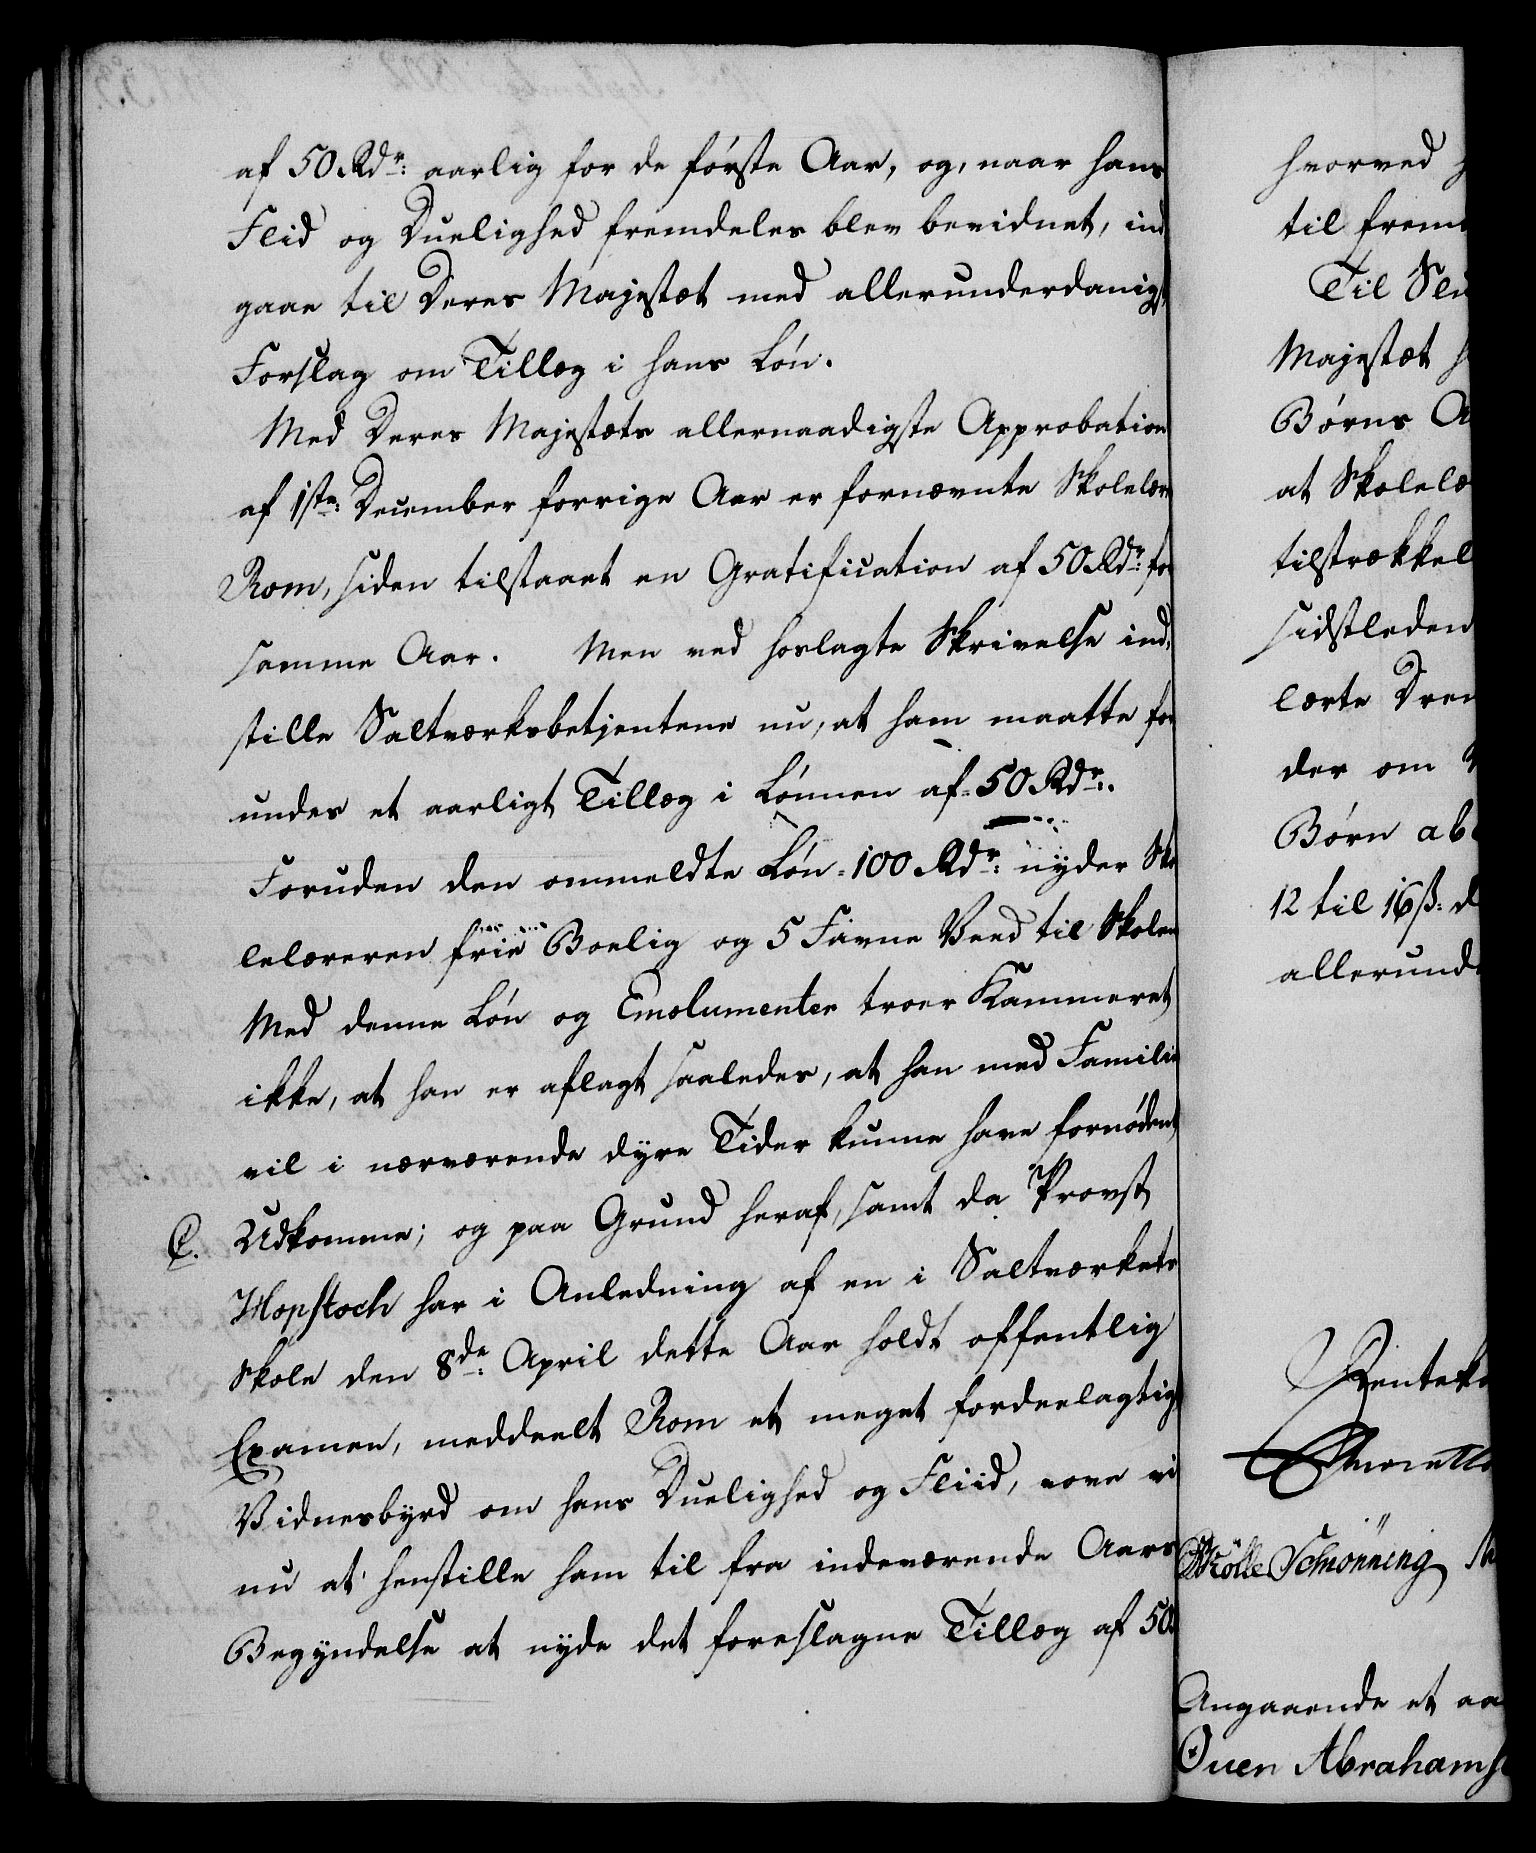 af 50 Rdr: aarlig for de første Aar, og, naar hans
Flid og Duelighed fremdeles blev bevidnet, ind
gaae til Deres Majestæt med allerunderdanigst
Forslag om Tillæg i hans Løn.
Med Deres Majestæts allernaadigste Approbation
af 1ste: December forrige Aar er fornævnte Skolelærer
Rom, siden tilstaaet en Gratification af 50 Rdr: for
samme Aar. Men ved hoslagte Skrivelse ind-
stille Saltværksbetjentene nu, at ham maatte for
undes et aarligt Tillæg i Lønnen af 50 Rdr.
Foruden den ommeldte Løn 100 Rdr: nyder Sko
lelæreren frie Boelig og 5 Favne Veed til Skolen
Med denne Løn og Emolumenter troer Kammeret
ikke, at han er aflagt saaledes, at han med Familie
vil i nærværende dyre Tider kunne have fornødent
C. Udkomme; og paa Grund heraf, samt da Provst
Hopstock har i Anledning af en i Saltværkets
Skole den 8de: April dette Aar holdt offentlig
Examen, meddeelt Rom et meget fordeelagtigt
Vidnesbyrd om hans Duelighed og Fliid, vove vi
nu at henstille ham til fra indeværende Aars
Begyndelse at nyde det foreslagne Tillæg af 50
hvorved
til frem
Til Slu
Majestæt
Børns
at Skolelæ
tilstrækkel
sidstleden
lærte Dren
der om
Børn ab
12 til 16 ß:
allerund
Renteka
Schiønning
Angaaende et aa
Ouen Abrahams